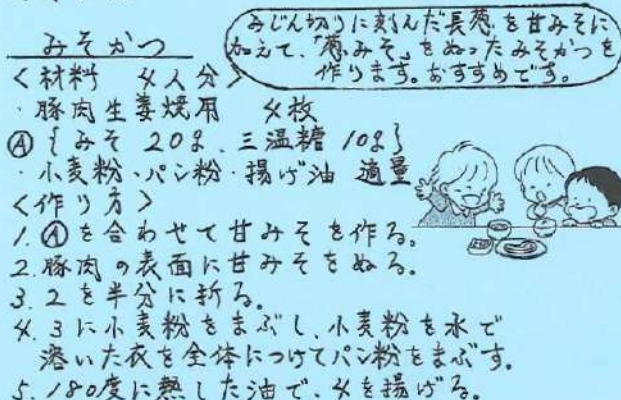 みじん切りに刻んだ長葱を甘みそに
加えて、「葱みそ」をぬったみそかつを
作ります。おすすめです。
みそかつ
<材料 4人分>
・豚肉生姜焼用 4枚
Ⓐ{みそ 20g、三温糖 10g}
・小麦粉・パン粉・揚げ油 適量
<作り方>
1. Ⓐを合わせて甘みそを作る。
2. 豚肉の表面に甘みそをぬる。
3. 2を半分に折る。
4. 3に小麦粉をまぶし、小麦粉を水で
溶いた衣を全体につけてパン粉をまぶす。
5. 180度に熱した油で、4を揚げる。